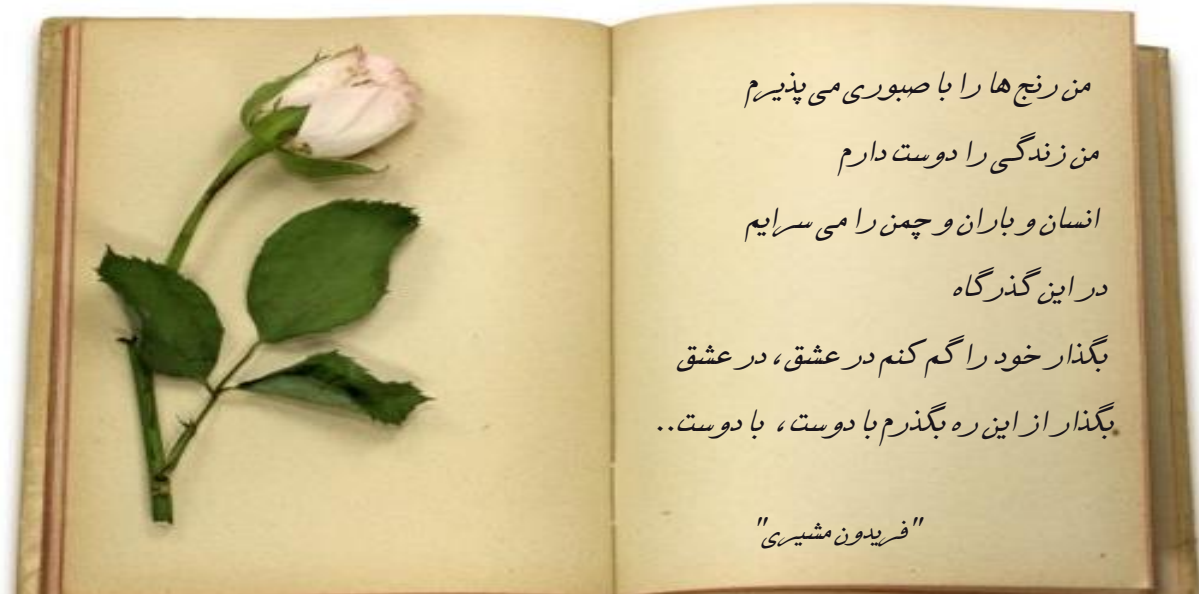 من رنج ها را با صبوری می پذیرم
من زندگی را دوست دارم
انسان و باران و چمن را می سرایم
در این گذرگاه
بگذار خود را گم کنم در عشق، در عشق
بگذار از این ره بگذرم با دوست، با دوست..
"فریدون مشیری"